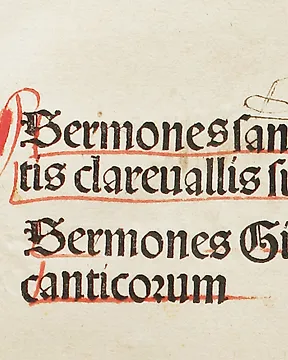 Sermones san
tis clareuallis su
Sermones Gi
canticorum